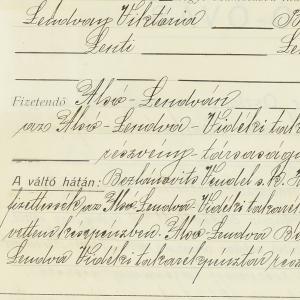 Lendvay Viktória
Lenti
Fizetendő Alsó-Lendván
az Alsó-Lendva-Vidéki tak
részvény-társaság
A váltó hátán: Vendel s. k.
fizettessék az Alsó-Lendva-Vidéki takaré
készpénzben. Alsó-Lendva
Lendva Vidéki takarékpénztár rész